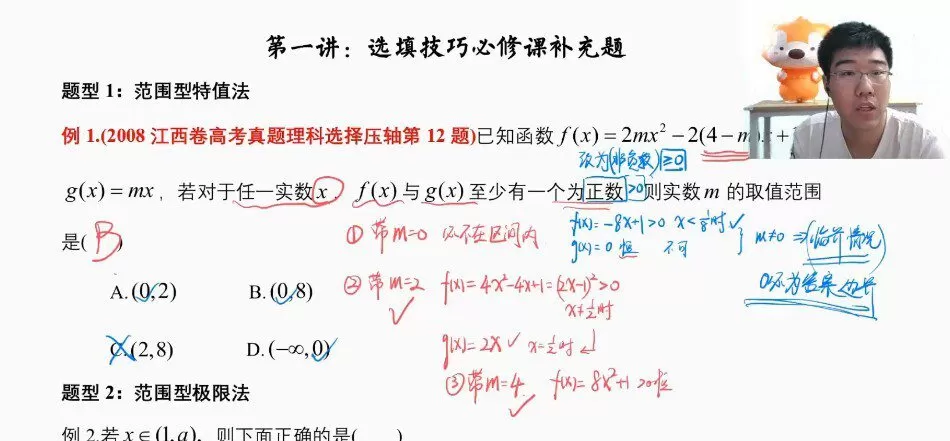 第一讲：选填技巧必修课补充题
题型 1：范围型特值法
例 1.(2008 江西卷高考真题理科选择压轴第 12 题)已知函数 f(x) = 2mx² − 2(4 − m)x +
改为(非负数) ≥0
g(x) = mx，若对于任一实数 x，f(x) 与 g(x) 至少有一个为正数 >0 则实数 m 的取值范围
是( B )
① 带m=0 必不在区间内
f(x)=-8x+1>0 x<1/8时 ✓
g(x)=0 恒 不可
} m≠0 ⇒(临界情况)
0必为答案边界
A. (0,2) B. (0,8)
② 带m=2 f(x)=4x²-4x+1=(2x-1)²>0
✓ x≠1/2时
C. (2,8) D. (−∞,0)
g(x)=2x ✓ x=1/2时
③ 带m=4 f(x)=8x²+1 >0恒
✓
题型 2：范围型极限法
例 2.若 x∈(1,a)，则下面正确的是( )